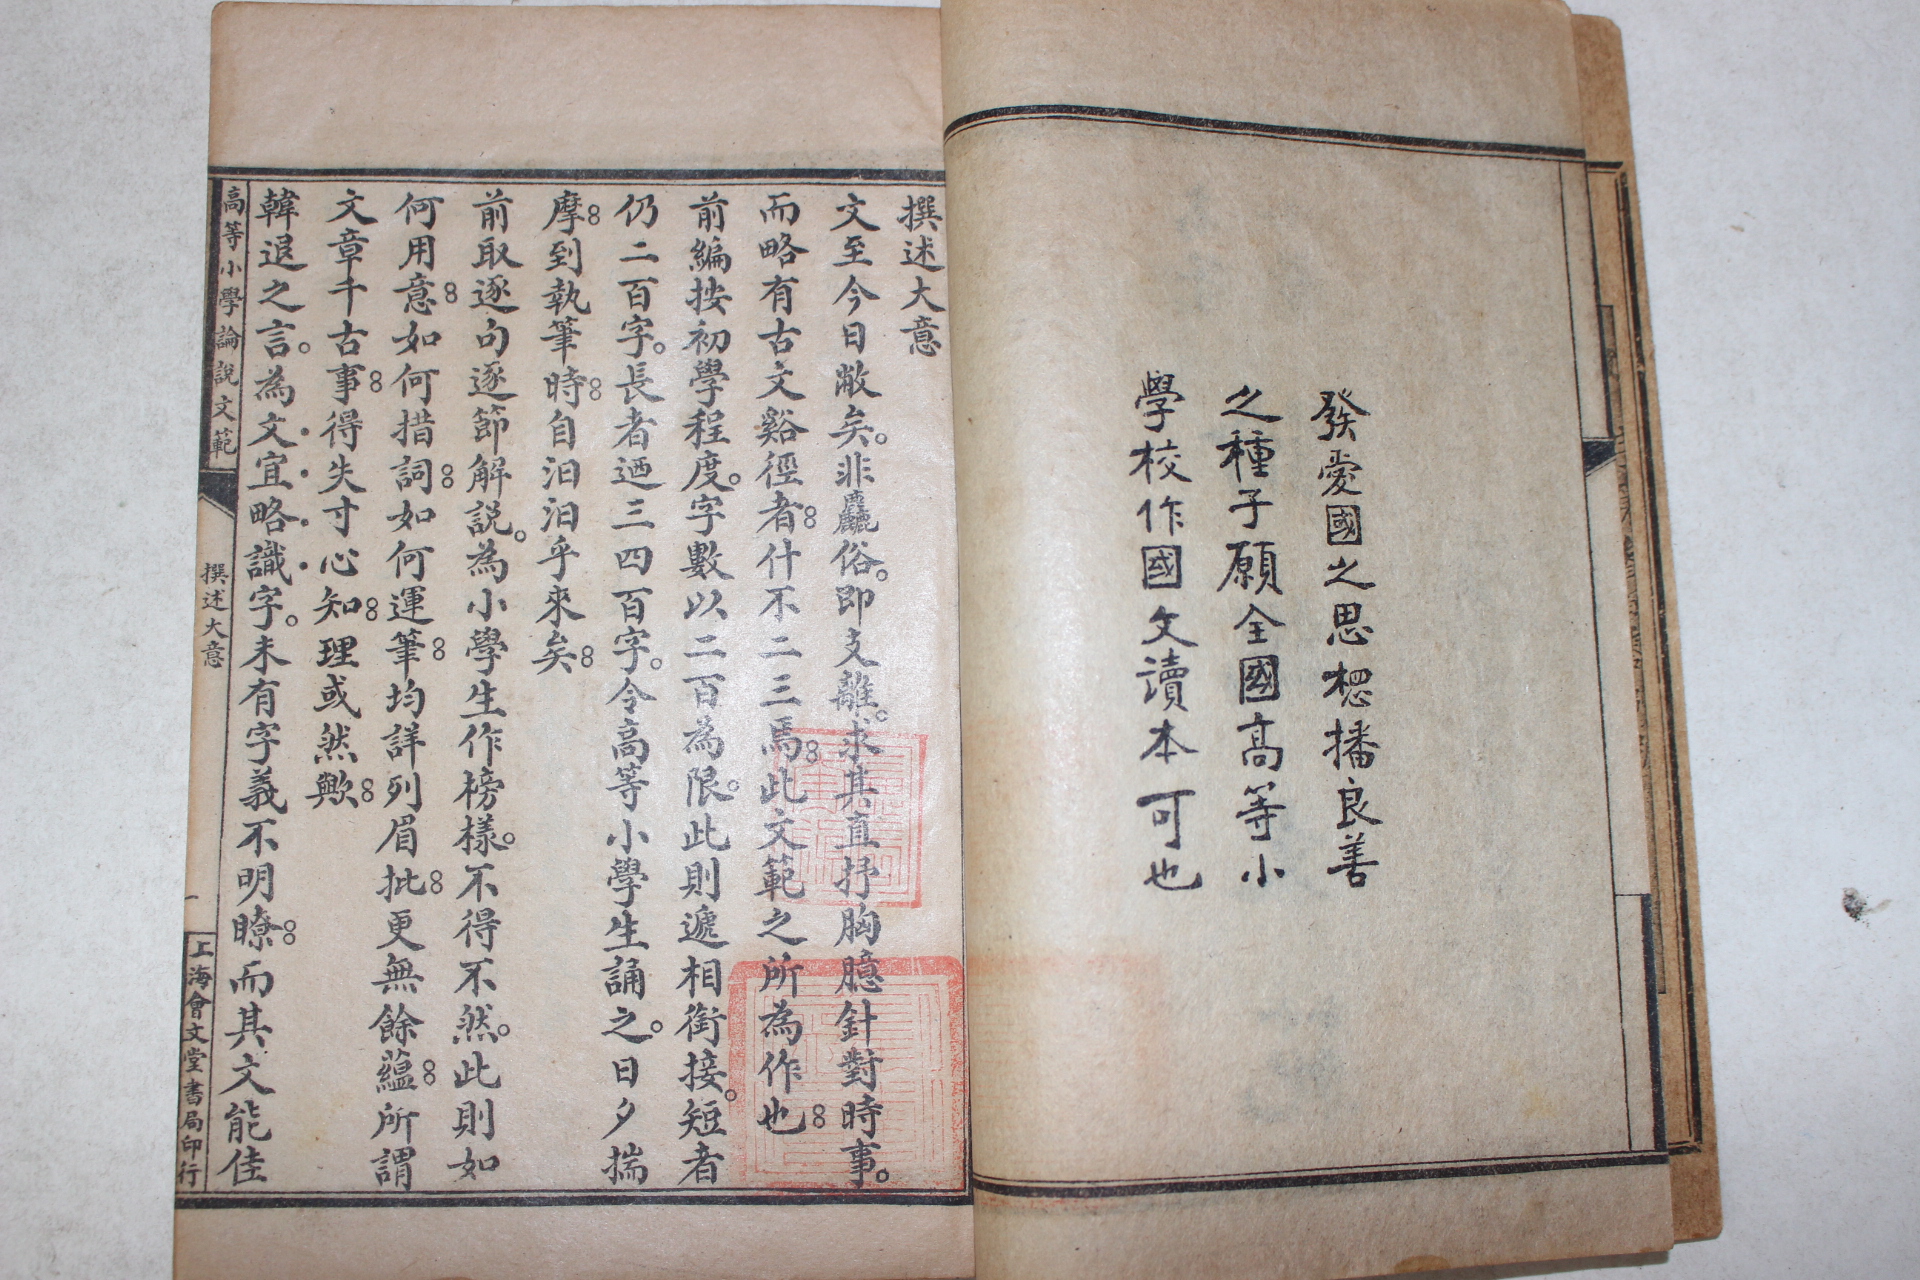 發愛國之思想播良善
之種子願全國高等小
學校作國文讀本可也
撰述大意
文至今日敝矣。非麤俗。即支離。求其直抒胸臆針對時事。
而略有古文谿徑者。什不二三焉。此文範之所為作也。
前編按初學程度。字數以二百為限。此則遞相銜接。短者
仍二百字。長者迺三四百字。令高等小學生誦之。日夕揣
摩。到執筆時。自汩汩乎來矣。
前取逐句逐節解說。為小學生作榜樣。不得不然。此則如
何用意。如何措詞。如何運筆。均詳列眉批。更無餘蘊。所謂
文章千古事。得失寸心知。理或然歟。
韓退之言。為文宜略識字。未有字義不明瞭。而其文能佳
高等小學論說文範
撰述大意
一
上海會文堂書局印行